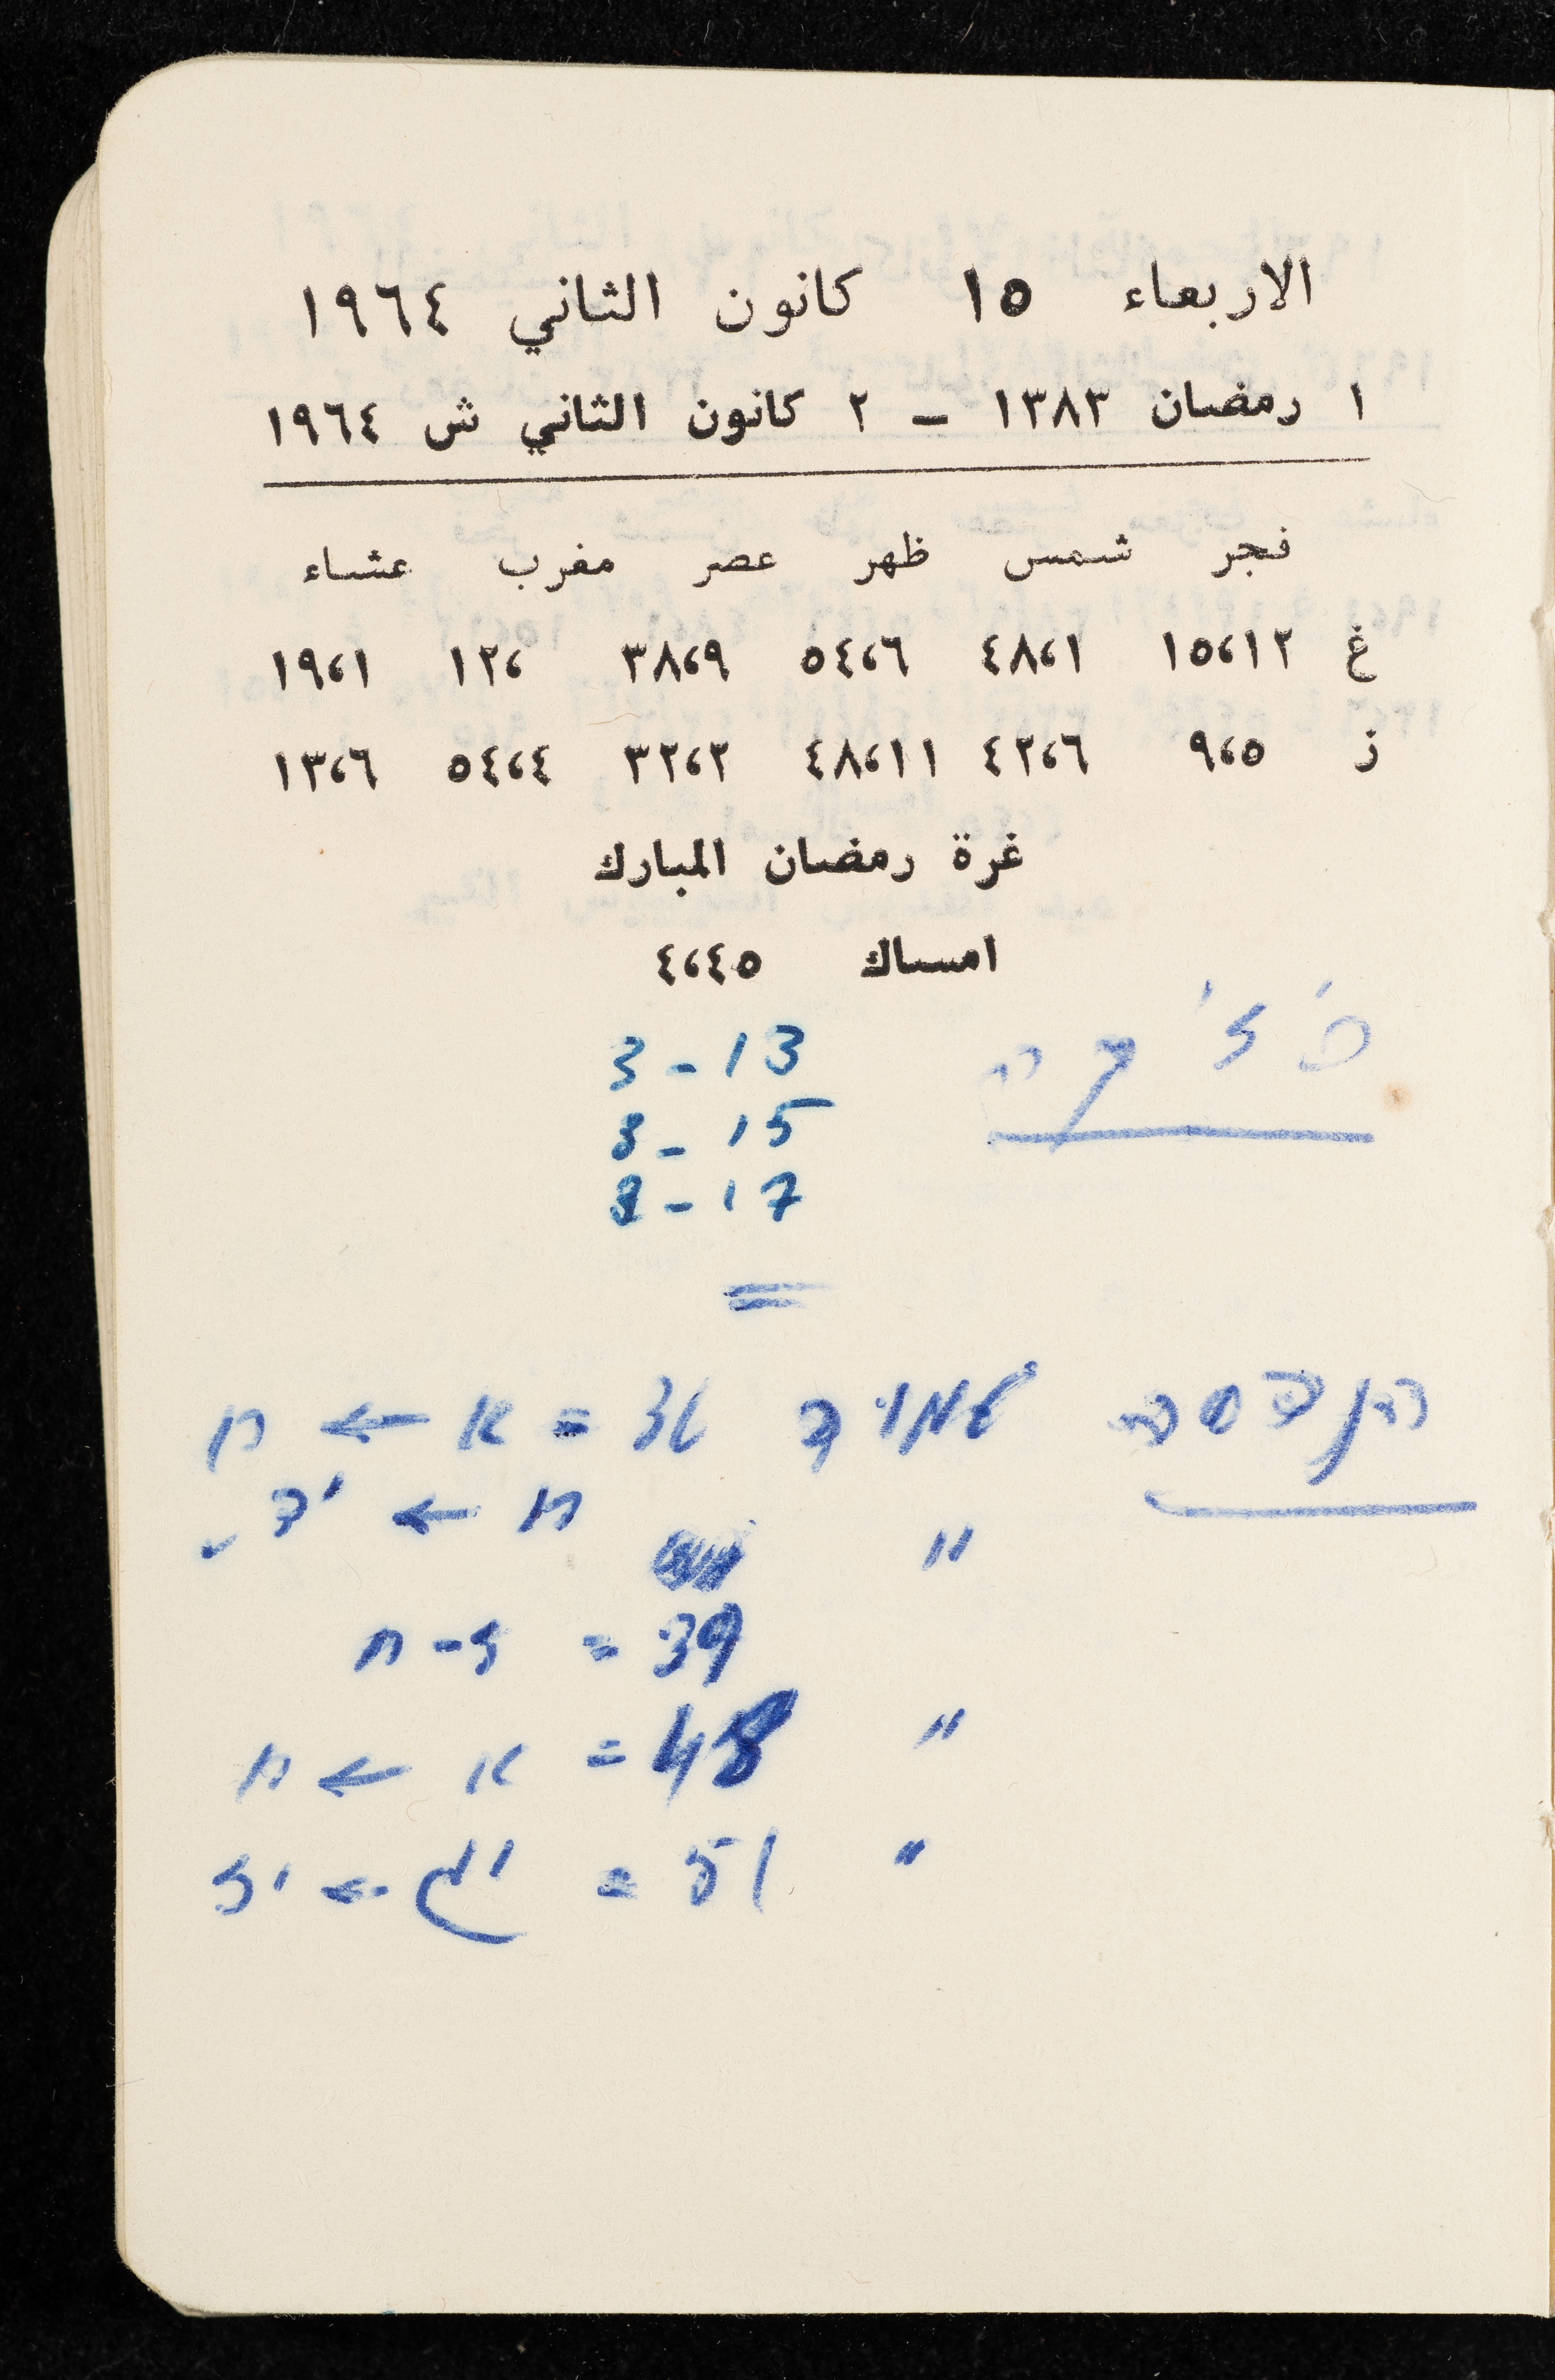 الاربعاء ١٥ كانون الثاني ١٩٦٤
١ رمضان ١٣٨٣ – ٢ كانون الثاني ش ١٩٦٤
فجر شمس ظهر عصر مغرب عشاء
غ ١٥،١٢ ٤٨،١ ٥٤،٦ ٣٨،٩ ١٢، ١٩،١
ز ٩،٥ ٤٢،٦ ٤٨،١١ ٣٢،٢ ٥٤،٤ ١٣،٦
غرة رمضان المبارك
امساك ٤،٤٥
3 - 13
8 - 15
8 - 17
הנדסה עמוד 36 = א ← ח
" ח ← י'ב
39 = ח - 5
" 48 = א ← ח
" 51 =